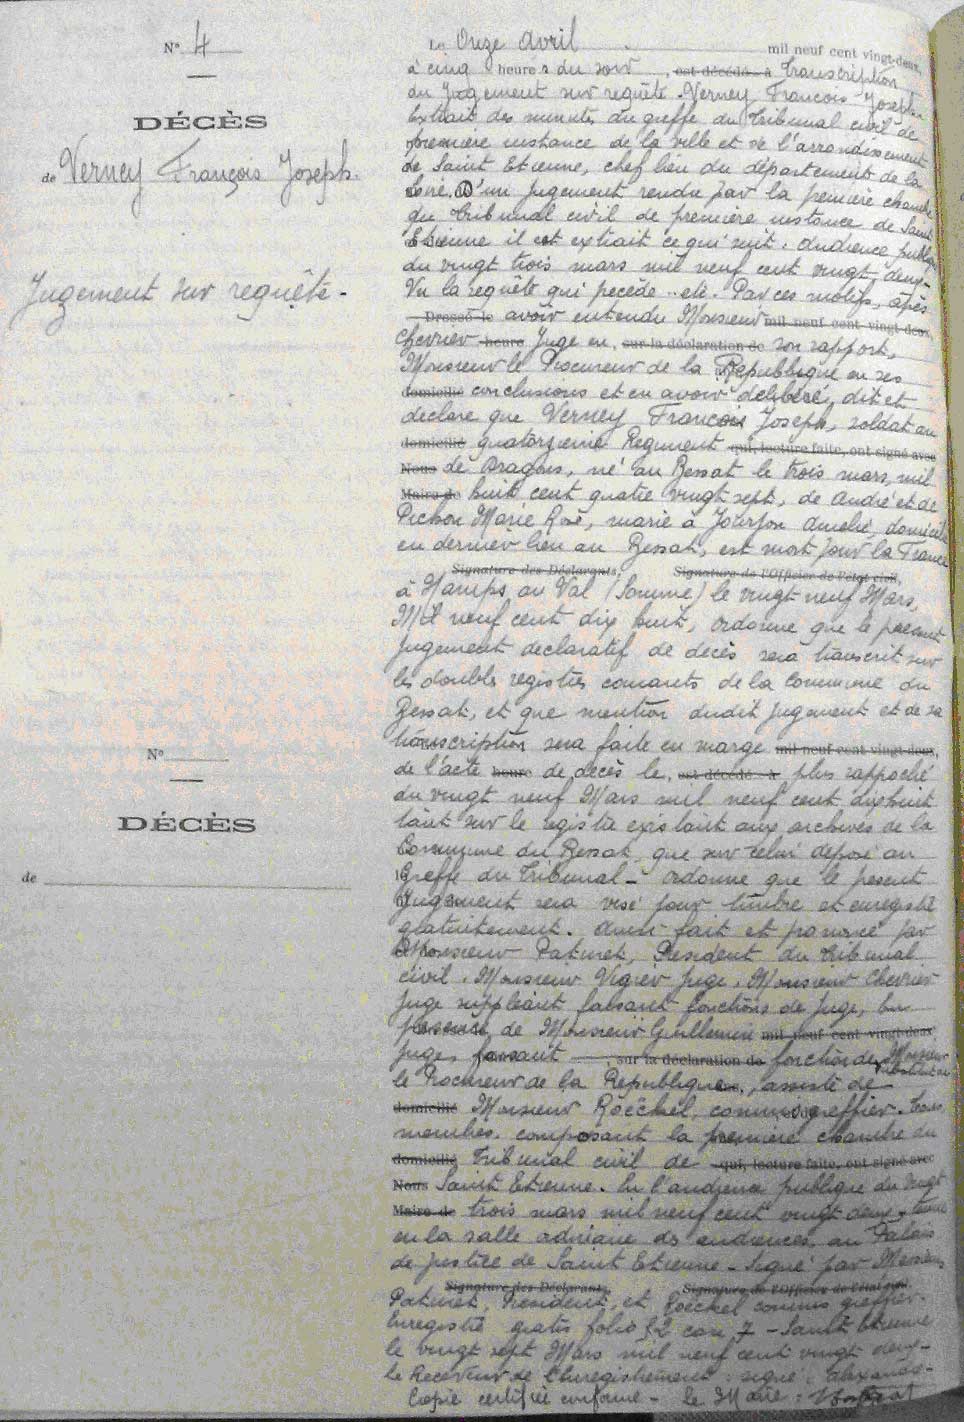 N° 4
DÉCÈS
de Verney François Joseph.
Jugement sur requête.
N°
DÉCÈS
de
Le Onze Avril mil neuf cent vingt-deux,
à cinq heures du soir, est décédé à transcription
du jugement sur requête. Verney François Joseph.
Extrait des minutes du greffe du Tribunal civil de
première instance de la ville et de l'arrondissement
de Saint Etienne, chef lieu du département de la
Loire. D'un jugement rendu par la première chambre
du tribunal civil de première instance de Saint
Etienne il est extrait ce qui suit. Audience publique
du vingt trois mars mil neuf cent vingt deux.
Vu la requête qui precede .. etc. Par ces motifs, après
Dressé le avoir entendu Monsieur mil neuf cent vingt-deux
Chevrier heure Juge en, sur la déclaration de son rapport,
Monsieur le Procureur de la République en ses
domicilié conclusions et en avoir délibéré, dit et
declare que Verney François Joseph, soldat au
domicilié quatorzieme Regiment qui, lecture faite, ont signé avec
Nous de Dragons, né au Bessat le trois mars, mil
Maire de huit cent quatre vingt sept, de André et de
Pichon Marie Rose, marié à Jourjon Amelie, domicilié
en dernier lieu au Bessat, est mort pour la France
Signature des Déclarants, Signature de l'Officier de l'état civil,
à Hamps au Val (Somme) le vingt neuf Mars,
Mil neuf cent dix huit, ordonne que le present
jugement declaratif de decès sera transcrit sur
les doubles registres courants de la Commune du
Bessat, et que mention dudit jugement et de sa
transcription sera faite en marge mil neuf cent vingt-deux,
de l'acte heure de decès le, est décédé à plus rapproché
du vingt neuf Mars mil neuf cent dix huit
tant sur le registre existant aux archives de la
Commune du Bessat, que sur celui déposé au
Greffe du Tribunal - ordonne que le present
Jugement sera visé pour timbre et enregistré
gratuitement. Ainsi fait et prononcé par
Monsieur Patinet, President du Tribunal
civil, Monsieur Vigier juge, Monsieur Chevrier
juge suppléant faisant fonctions de juge, en
presence de Monsieur Guillemin mil neuf cent vingt-deux
juge, faisant sur la déclaration de fonction de Monsieur
le Procureur de la Republique, assisté de
domicilié Monsieur Roëckel, commis greffier. Tous
membres composant la première chambre du
domicilié Tribunal civil de qui, lecture faite, ont signé avec
Nous Saint Etienne. En l'audience publique du vingt
Maire de trois mars mil neuf cent vingt deux, tenue
en la salle ordinaire des audiences au Palais
de justice de Saint Etienne - Signé par Messieurs
Signature des Déclarants, Signature de l'Officier de l'état civil,
Patinet, President, et Roëckel commis greffier.
Enregistré gratis folio 52 case 7 - Saint Etienne
le vingt sept Mars mil neuf cent vingt deux -
le Receveur de l'Enregistrement: signé:
Copie certifiée conforme - Le Maire: